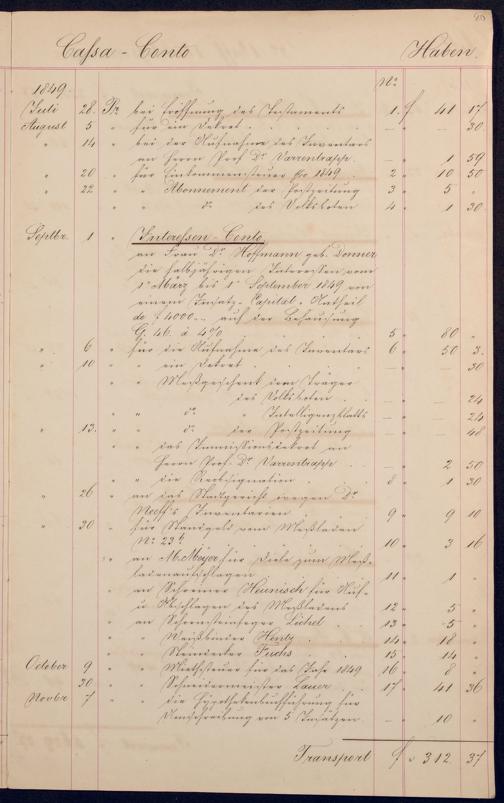 Cassa - Conto Haben.
No.
1849.
Juli 28. Pr. bei Eröffnung des Testaments 1. f. 41 17
August 5 " für ein Dekret — " — 30
" 14 " bei der Aufnahme des Inventars
an Herrn Prof. Dr. Varrentrapp. — " 1 59
" 20 " für Einkommensteuer pro 1849. 2 " 10 50
" 22 " " Abonnement der Postzeitung 3 " 5 "
" " do. des Volksboten 4 " 1 30
Septbr. 1 " Interessen-Conto
an Frau Dr. Hoffmann geb. Donner
die halbjährigen Interessen vom
1r. März bis 1r. September 1849 von
einem Insatz-Capital-Antheil
de f 4000.- auf der Behausung
G. 46. à 4%. 5 " 80 "
" 6 " für die Aufnahme des Inventars 6 " 50 3.
" 10 " " ein Dekret — " — 30
" " Meßgeschenk dem Träger
des Volksboten — " — 24
" " do. " Intelligenzblatts — " — 24
" 13. " " do. der Postzeitung — " — 48
" " das Immissionsdekret an
Herrn Prof. Dr. Varrentrapp — " 2 50
" " die 8 " 1 30
" 26 " an das Stadtgericht wegen Dr.
Neeff's Inventarien 9 " 9 10
" 30 " für Standgeld vom Meßladen
No. 23 10 " 3 16
" " an M. Meyer für Diele zum Meß-
ladenaufschlagen 11 " 1 "
" an Schreiner Heunisch für Auf-
u. Abschlagen des Meßladens 12 " 5 "
" an Schornsteinfeger Lichel 13 " 5 "
" " Weißbinder Hintz 14 " 18 "
" " Steindecker Fuchs 15 " 14 "
October 9 " " Miethsteuer für das Jahr 1849 16 " 8 "
30 " " Schneidermeister Lauer 17 " 41 36
Novbr. 7 " " die Hypothekenbuchführung für
Umschreibung von 5 Insätzen — " 10 "
Transport f " 312 37